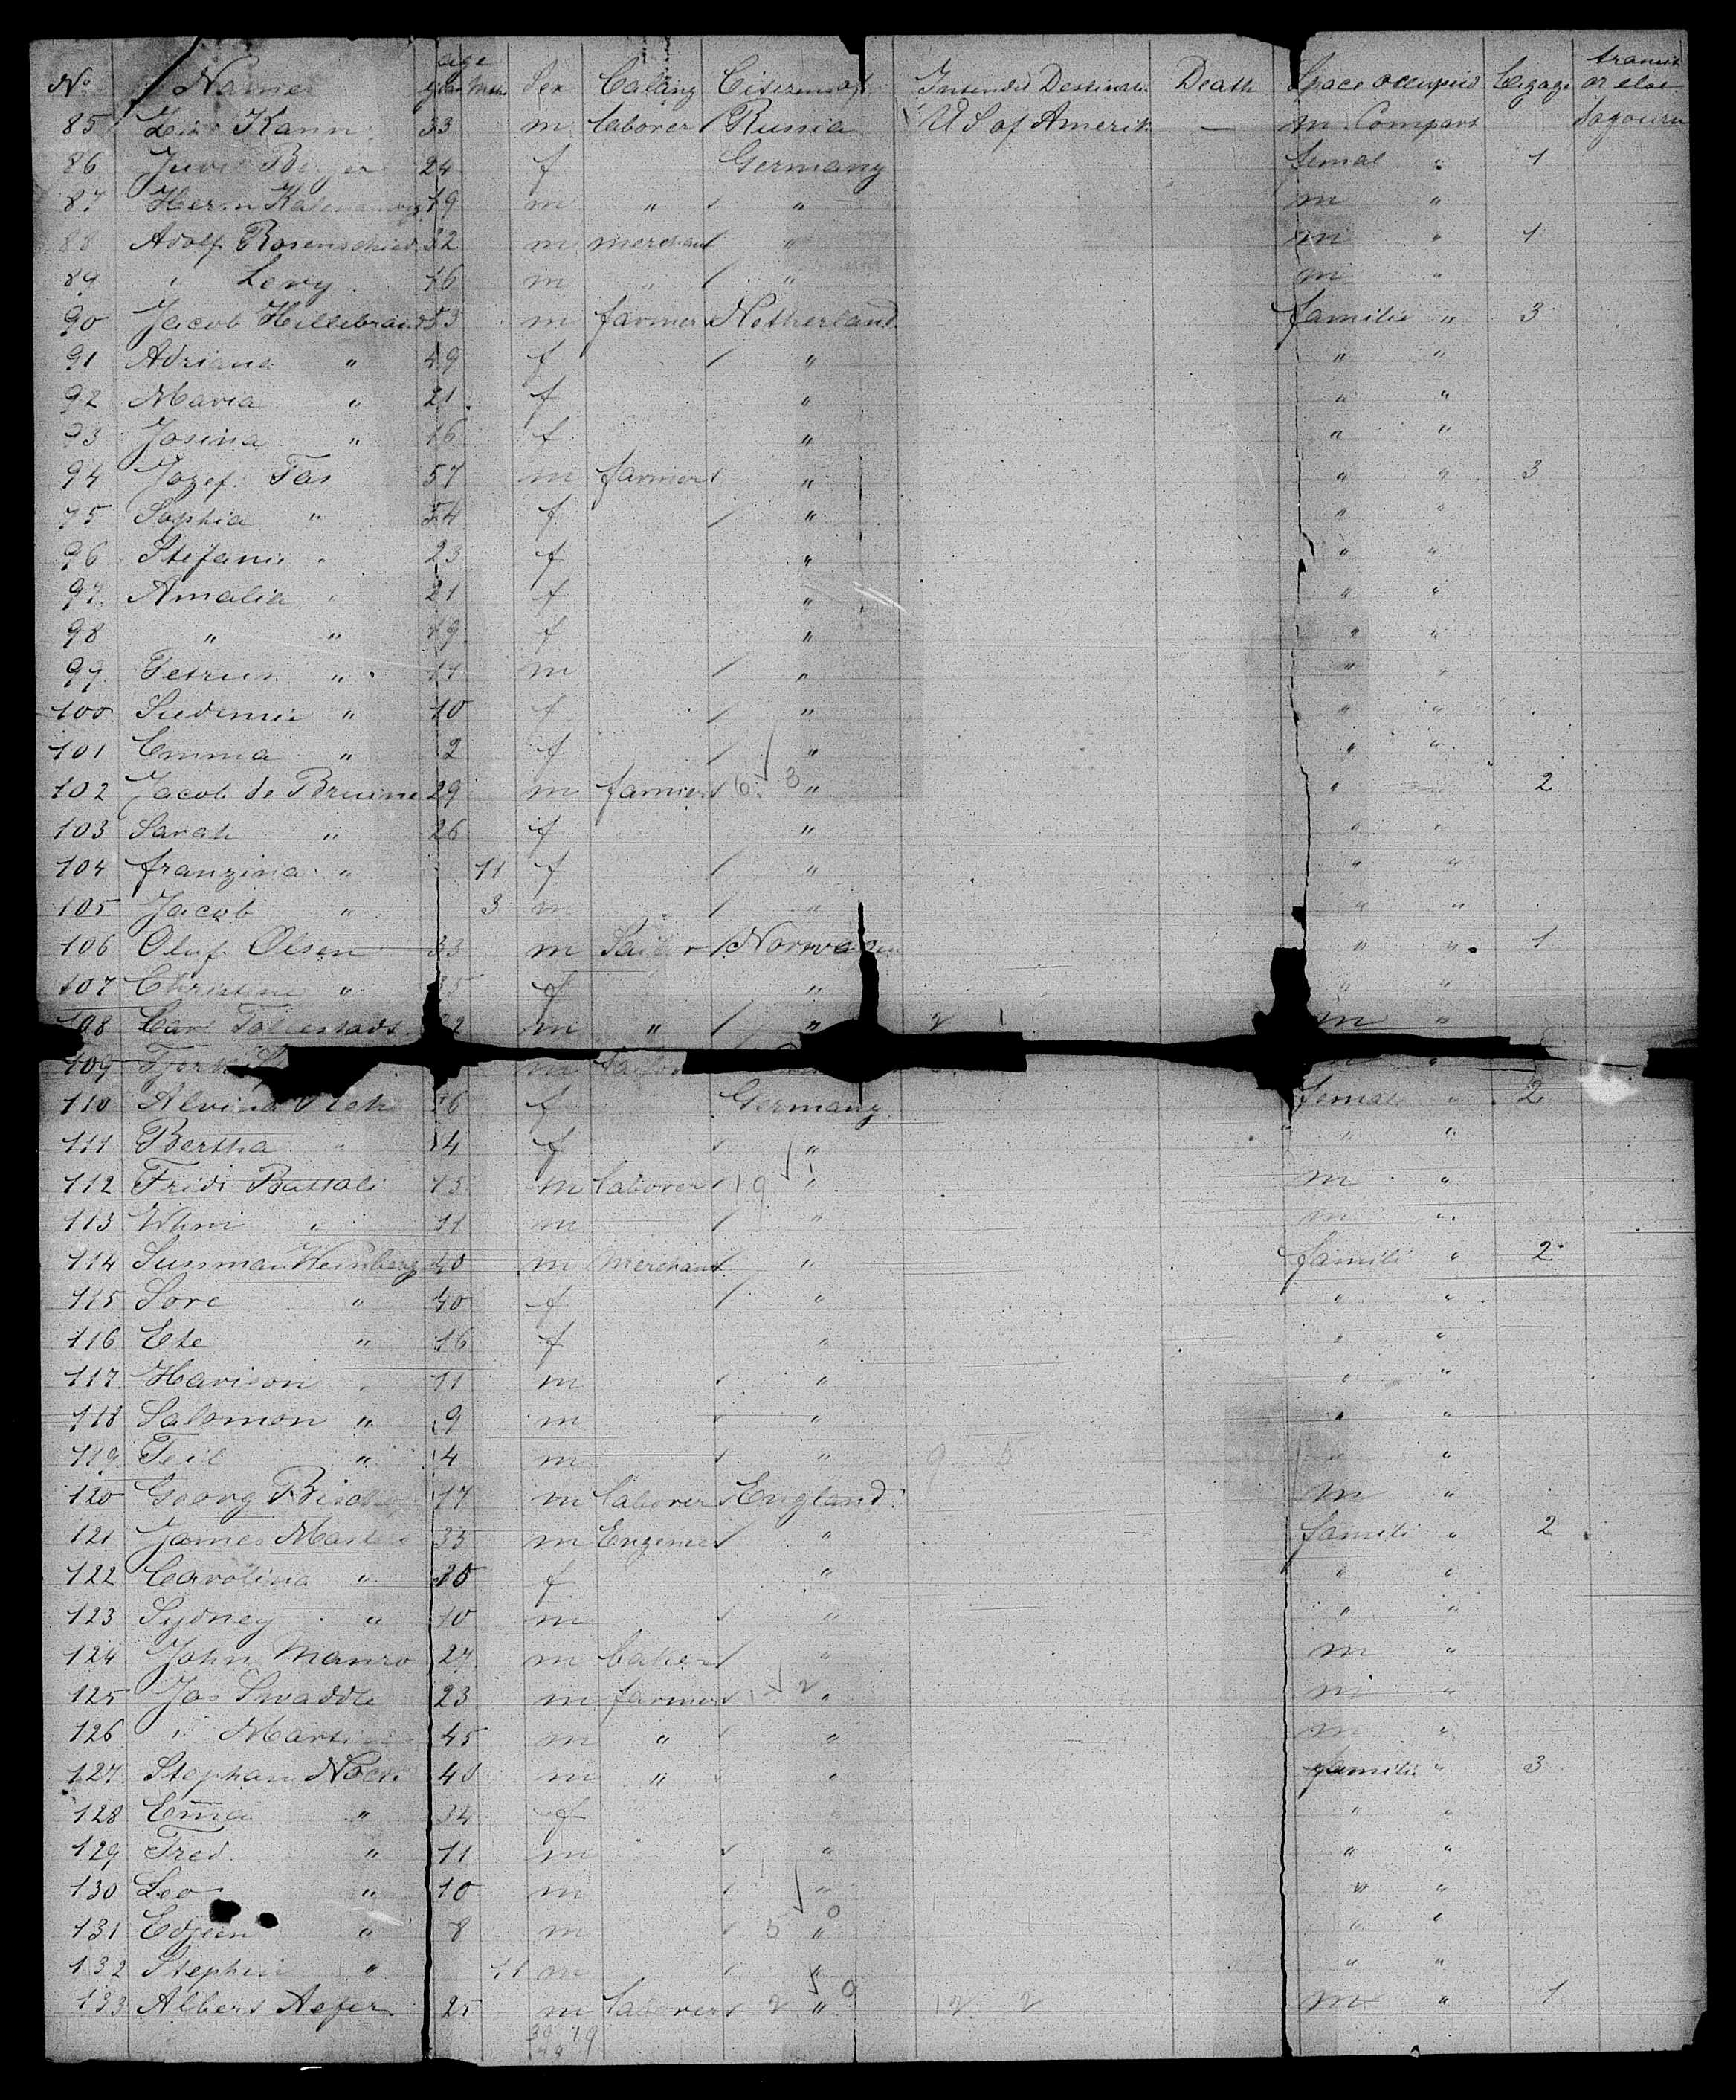 No Names age years Mth Sex Calling Citizens of Intended Destinat. Death Space occupied Bagage transit or else
85 Kann 33 m laborer Russia US of Amerik — m Compart Sojourn
86 24 f Germany femal " 1
87 Herm 19 m " " m "
88 Adolf 32 m merchant " m " 1
89 " Levy 16 m " " m "
90 Jacob Hillebrand 53 m farmer Netherland familie " 3
91 Adriana " 49 f " " "
92 Maria " 21 f " " "
93 Josina " 16 f " " "
94 Jozef Tas 57 m farmer " " " 3
95 Sophia " 54 f " " "
96 Stefanie " 23 f " " "
97 Amalia " 21 f " " "
98 " " 19 f " " "
99 Petrus " 11 m " " "
100 " 10 f " " "
101 Emma " 2 f " " "
102 Jacob de Bruine 29 m farmer 6 3 " " " 2
103 Sarah " 26 f " " "
104 franzina " 11 f " " "
105 Jacob " 3 m " " "
106 Oluf Olsen 33 m Sailor Norwagen " " 1
107 Christine " 35 f " " "
108 Carl m " " 2 1 m "
109 m Sailor "
110 Alvina 16 f Germany femal " 2
111 Bertha " 14 f " " "
112 Fridi 15 m laborer " m "
113 " 11 m " m "
114 Sussman Weinberg 40 m Merchant " famili " 2
115 Sore " 40 f " " "
116 Ete " 16 f " " "
117 Harison " 11 m " " "
118 Salomon " 9 m " " "
119 " 4 m " 9 5 " "
120 Georg 17 m laborer England m "
121 James 35 m Engeneer " famili " 2
122 Carolina " 35 f " " "
123 Sydney " 10 m " " "
124 John Manro 27 m baker " m "
125 Jas Swaddle 23 m farmer " m "
126 " 45 m " " m "
127 Stephan 40 m " " familie " 3
128 Em̄a " 34 f " "
129 Fred " 11 m " " "
130 Leo " 10 m " " "
131 " 8 m 5 0 " " "
132 " 11 m " " "
133 Albert 25 m laborer 2 0 " 12 2 m " 1
30 19
49